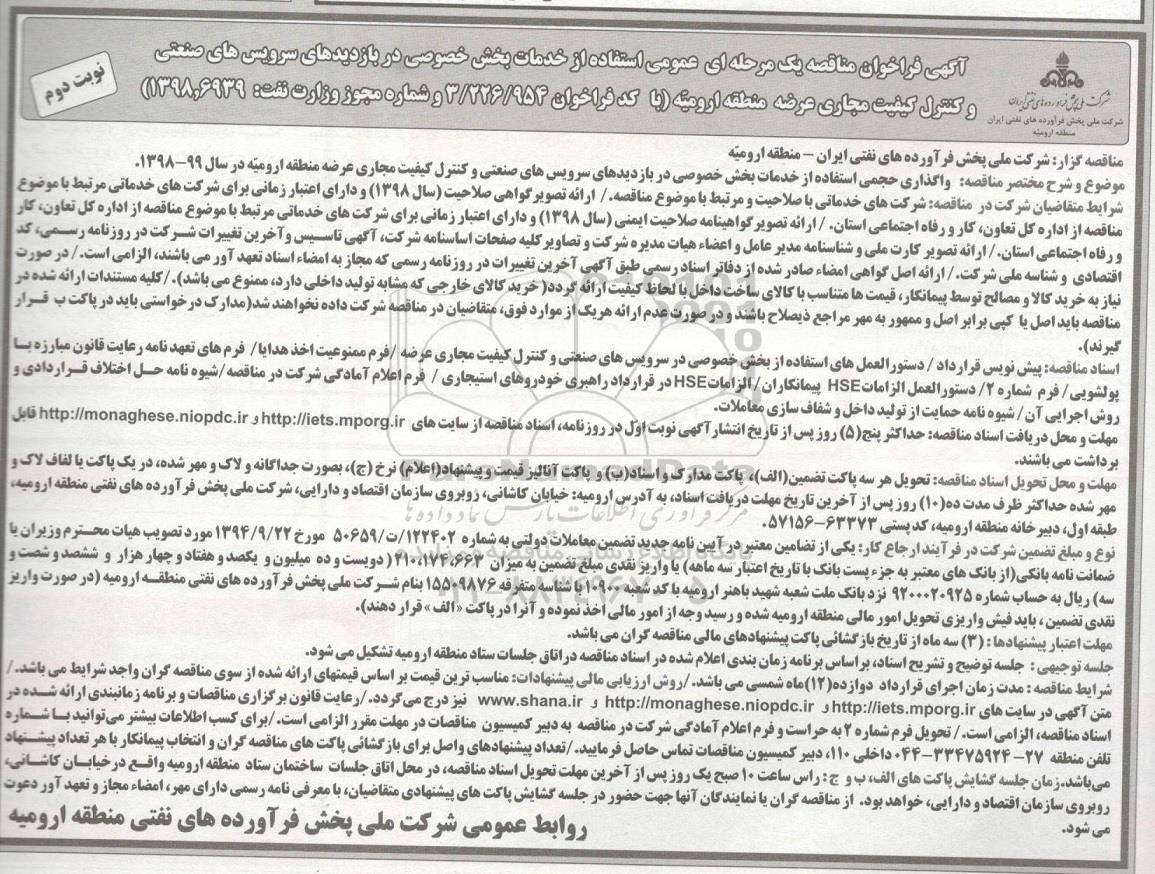 آگهی فراخوان مناقصه یک مرحله ای عمومی استفاده از خدمات بخش خصوصی در بازدیدهای سرویس های صنعتی
و کنترل کیفیت مجاری عرضه منطقه ارومیّه (با کد فراخوان ۳/۲۲۶/۹۵۴ و شماره مجوز وزارت نفت: ۱۳۹۸,۶۹۳۹)
نوبت دوم
شرکت ملی پخش فرآورده های نفتی ایران
شرکت ملی پخش فرآورده های نفتی ایران
منطقه ارومیّه
مناقصه گزار: شرکت ملی پخش فرآورده های نفتی ایران – منطقه ارومیّه
موضوع و شرح مختصر مناقصه: واگذاری حجمی استفاده از خدمات بخش خصوصی در بازدیدهای سرویس های صنعتی و کنترل کیفیت مجاری عرضه منطقه ارومیّه در سال ۹۹-۱۳۹۸.
شرایط متقاضیان شرکت در مناقصه: شرکت های خدماتی با صلاحیت و مرتبط با موضوع مناقصه. / ارائه تصویر گواهی صلاحیت (سال ۱۳۹۸) و دارای اعتبار زمانی برای شرکت های خدماتی مرتبط با موضوع
مناقصه از اداره کل تعاون، کار و رفاه اجتماعی استان. / ارائه تصویر گواهینامه صلاحیت ایمنی (سال ۱۳۹۸) و دارای اعتبار زمانی برای شرکت های خدماتی مرتبط با موضوع مناقصه از اداره کل تعاون، کار
و رفاه اجتماعی استان. / ارائه تصویر کارت ملی و شناسنامه مدیر عامل و اعضاء هیات مدیره شرکت و تصاویر کلیه صفحات اساسنامه شرکت، آگهی تاسیس و آخرین تغییرات شرکت در روزنامه رسمی، کد
اقتصادی و شناسه ملی شرکت. / ارائه اصل گواهی امضاء صادر شده از دفاتر اسناد رسمی طبق آگهی آخرین تغییرات در روزنامه رسمی که مجاز به امضاء اسناد تعهد آور می باشند، الزامی است. / در صورت
نیاز به خرید کالا و مصالح توسط پیمانکار، قیمت ها متناسب با کالای ساخت داخل با لحاظ کیفیت ارائه گردد( خرید کالای خارجی که مشابه تولید داخلی دارد، ممنوع می باشد). /کلیه مستندات ارائه شده در
مناقصه باید اصل یا کپی برابر اصل و ممهور به مهر مراجع ذیصلاح باشند و در صورت عدم ارائه هریک از موارد فوق، متقاضیان در مناقصه شرکت داده نخواهند شد(مدارک درخواستی باید در پاکت ب قرار
گیرند).
اسناد مناقصه: پیش نویس قرارداد / دستورالعمل های استفاده از بخش خصوصی در سرویس های صنعتی و کنترل کیفیت مجاری عرضه /فرم ممنوعیت اخذ هدایا/ فرم های تعهد نامه رعایت قانون مبارزه با
پولشویی / فرم شماره ۲/ دستورالعمل الزامات HSE پیمانکاران / الزامات HSE در قرارداد راهبری خودروهای استیجاری / فرم اعلام آمادگی شرکت در مناقصه /شیوه نامه حل اختلاف قراردادی و
روش اجرایی آن / شیوه نامه حمایت از تولید داخل و شفاف سازی معاملات.
مهلت و محل دریافت اسناد مناقصه: حداکثر پنج(۵) روز پس از تاریخ انتشار آگهی نوبت اول در روزنامه، اسناد مناقصه از سایت های http://iets.mporg.ir و http://monaghese.niopdc.ir قابل
برداشت می باشند.
مهلت و محل تحویل اسناد مناقصه: تحویل هر سه پاکت تضمین(الف)، پاکت مدارک و اسناد(ب) و پاکت آنالیز قیمت و پیشنهاد(اعلام) نرخ (ج)، بصورت جداگانه و لاک و مهر شده، در یک پاکت یا لفاف لاک و
مهر شده حداکثر ظرف مدت ده(۱۰) روز پس از آخرین تاریخ مهلت دریافت اسناد، به آدرس ارومیه: خیابان کاشانی، روبروی سازمان اقتصاد و دارایی، شرکت ملی پخش فرآورده های نفتی منطقه ارومیه،
طبقه اول، دبیرخانه منطقه ارومیه، کد پستی ۶۳۳۷۳-۵۷۱۵۶.
نوع و مبلغ تضمین شرکت در فرآیند ارجاع کار: یکی از تضامین معتبر در آیین نامه جدید تضمین معاملات دولتی به شماره ۱۲۳۴۰۲/ت۵۰۶۵۹ مورخ ۱۳۹۴/۹/۲۲ مورد تصویب هیات محترم وزیران یا
ضمانت نامه بانکی(از بانک های معتبر به جزء پست بانک با تاریخ اعتبار سه ماهه) یا واریز نقدی مبلغ تضمین به میزان ۲۱۰,۱۷۴,۶۶۳( دویست و ده میلیون و یکصد و هفتاد و چهار هزار و ششصد و شصت و
سه) ریال به حساب شماره ۹۲۰۰۰۲۰۹۲۵ نزد بانک ملت شعبه شهید باهنر ارومیه با کد شعبه ۱۰۹۰ با شناسه متفرقه ۱۵۵۰۹۸۷۶ بنام شرکت ملی پخش فرآورده های نفتی منطقه ارومیه (در صورت واریز
نقدی تضمین ، باید فیش واریزی تحویل امور مالی منطقه ارومیه شده و رسید وجه از امور مالی اخذ نموده و آنرا در پاکت « الف » قرار دهند).
مهلت اعتبار پیشنهادها : (۳) سه ماه از تاریخ بازگشائی پاکت پیشنهادهای مالی مناقصه گران می باشد.
جلسه توجیهی : جلسه توضیح و تشریح اسناد، براساس برنامه زمان بندی اعلام شده در اسناد مناقصه در اتاق جلسات ستاد منطقه ارومیه تشکیل می شود.
شرایط مناقصه : مدت زمان اجرای قرارداد دوازده(۱۲)ماه شمسی می باشد. /روش ارزیابی مالی پیشنهادات: مناسب ترین قیمت بر اساس قیمتهای ارائه شده از سوی مناقصه گران واجد شرایط می باشد. /
متن آگهی در سایت های http://iets.mporg.ir و http://monaghese.niopdc.ir و www.shana.ir نیز درج می گردد. /رعایت قانون برگزاری مناقصات و برنامه زمانبندی ارائه شده در
اسناد مناقصه، الزامی است. / تحویل فرم شماره ۲ به حراست و فرم اعلام آمادگی شرکت در مناقصه به دبیر کمیسیون مناقصات در مهلت مقرر الزامی است. /برای کسب اطلاعات بیشتر می‌توانید با شماره
تلفن منطقه ۲۷-۳۳۴۷۵۹۲۴-۰۴۴ داخلی ۱۱۰، دبیر کمیسیون مناقصات تماس حاصل فرمایید. /تعداد پیشنهادهای واصل برای بازگشائی پاکت های مناقصه گران و انتخاب پیمانکار با هر تعداد پیشنهاد
می‌باشد.زمان جلسه گشایش پاکت های الف، ب و ج : راس ساعت ۱۰ صبح یک روز پس از آخرین مهلت تحویل اسناد مناقصه، در محل اتاق جلسات ساختمان ستاد منطقه ارومیه واقع در خیابان کاشانی،
روبروی سازمان اقتصاد و دارایی، خواهد بود. از مناقصه گران یا نمایندگان آنها جهت حضور در جلسه گشایش پاکت های پیشنهادی متقاضیان، با معرفی نامه رسمی دارای مهر، امضاء مجاز و تعهد آور دعوت
می شود.
روابط عمومی شرکت ملی پخش فرآورده های نفتی منطقه ارومیه